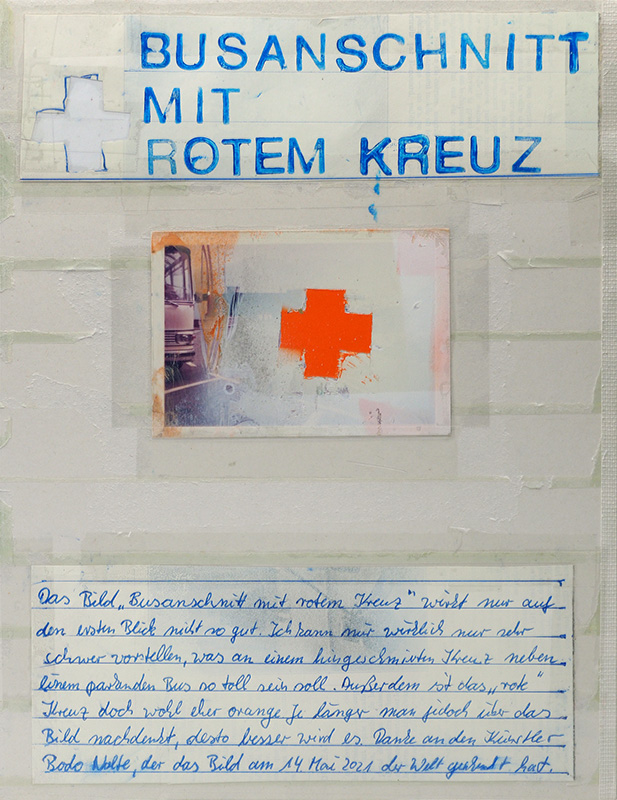 BUSANSCHNITT
MIT
ROTEM KREUZ
Das Bild „Busanschnitt mit rotem Kreuz" wirkt nur auf
den ersten Blick nicht so gut. Ich kann mir wirklich nur sehr
schwer vorstellen, was an einem hingeschmirten Kreuz neben
einem parkenden Bus so toll sein soll. Außerdem ist das „rote"
Kreuz doch wohl eher orange Je länger man jedoch über das
Bild nachdenkt, desto besser wird es. Danke an den Künstler
Bodo Nolte, der das Bild am 14. Mai 2021 der Welt geschenkt hat.